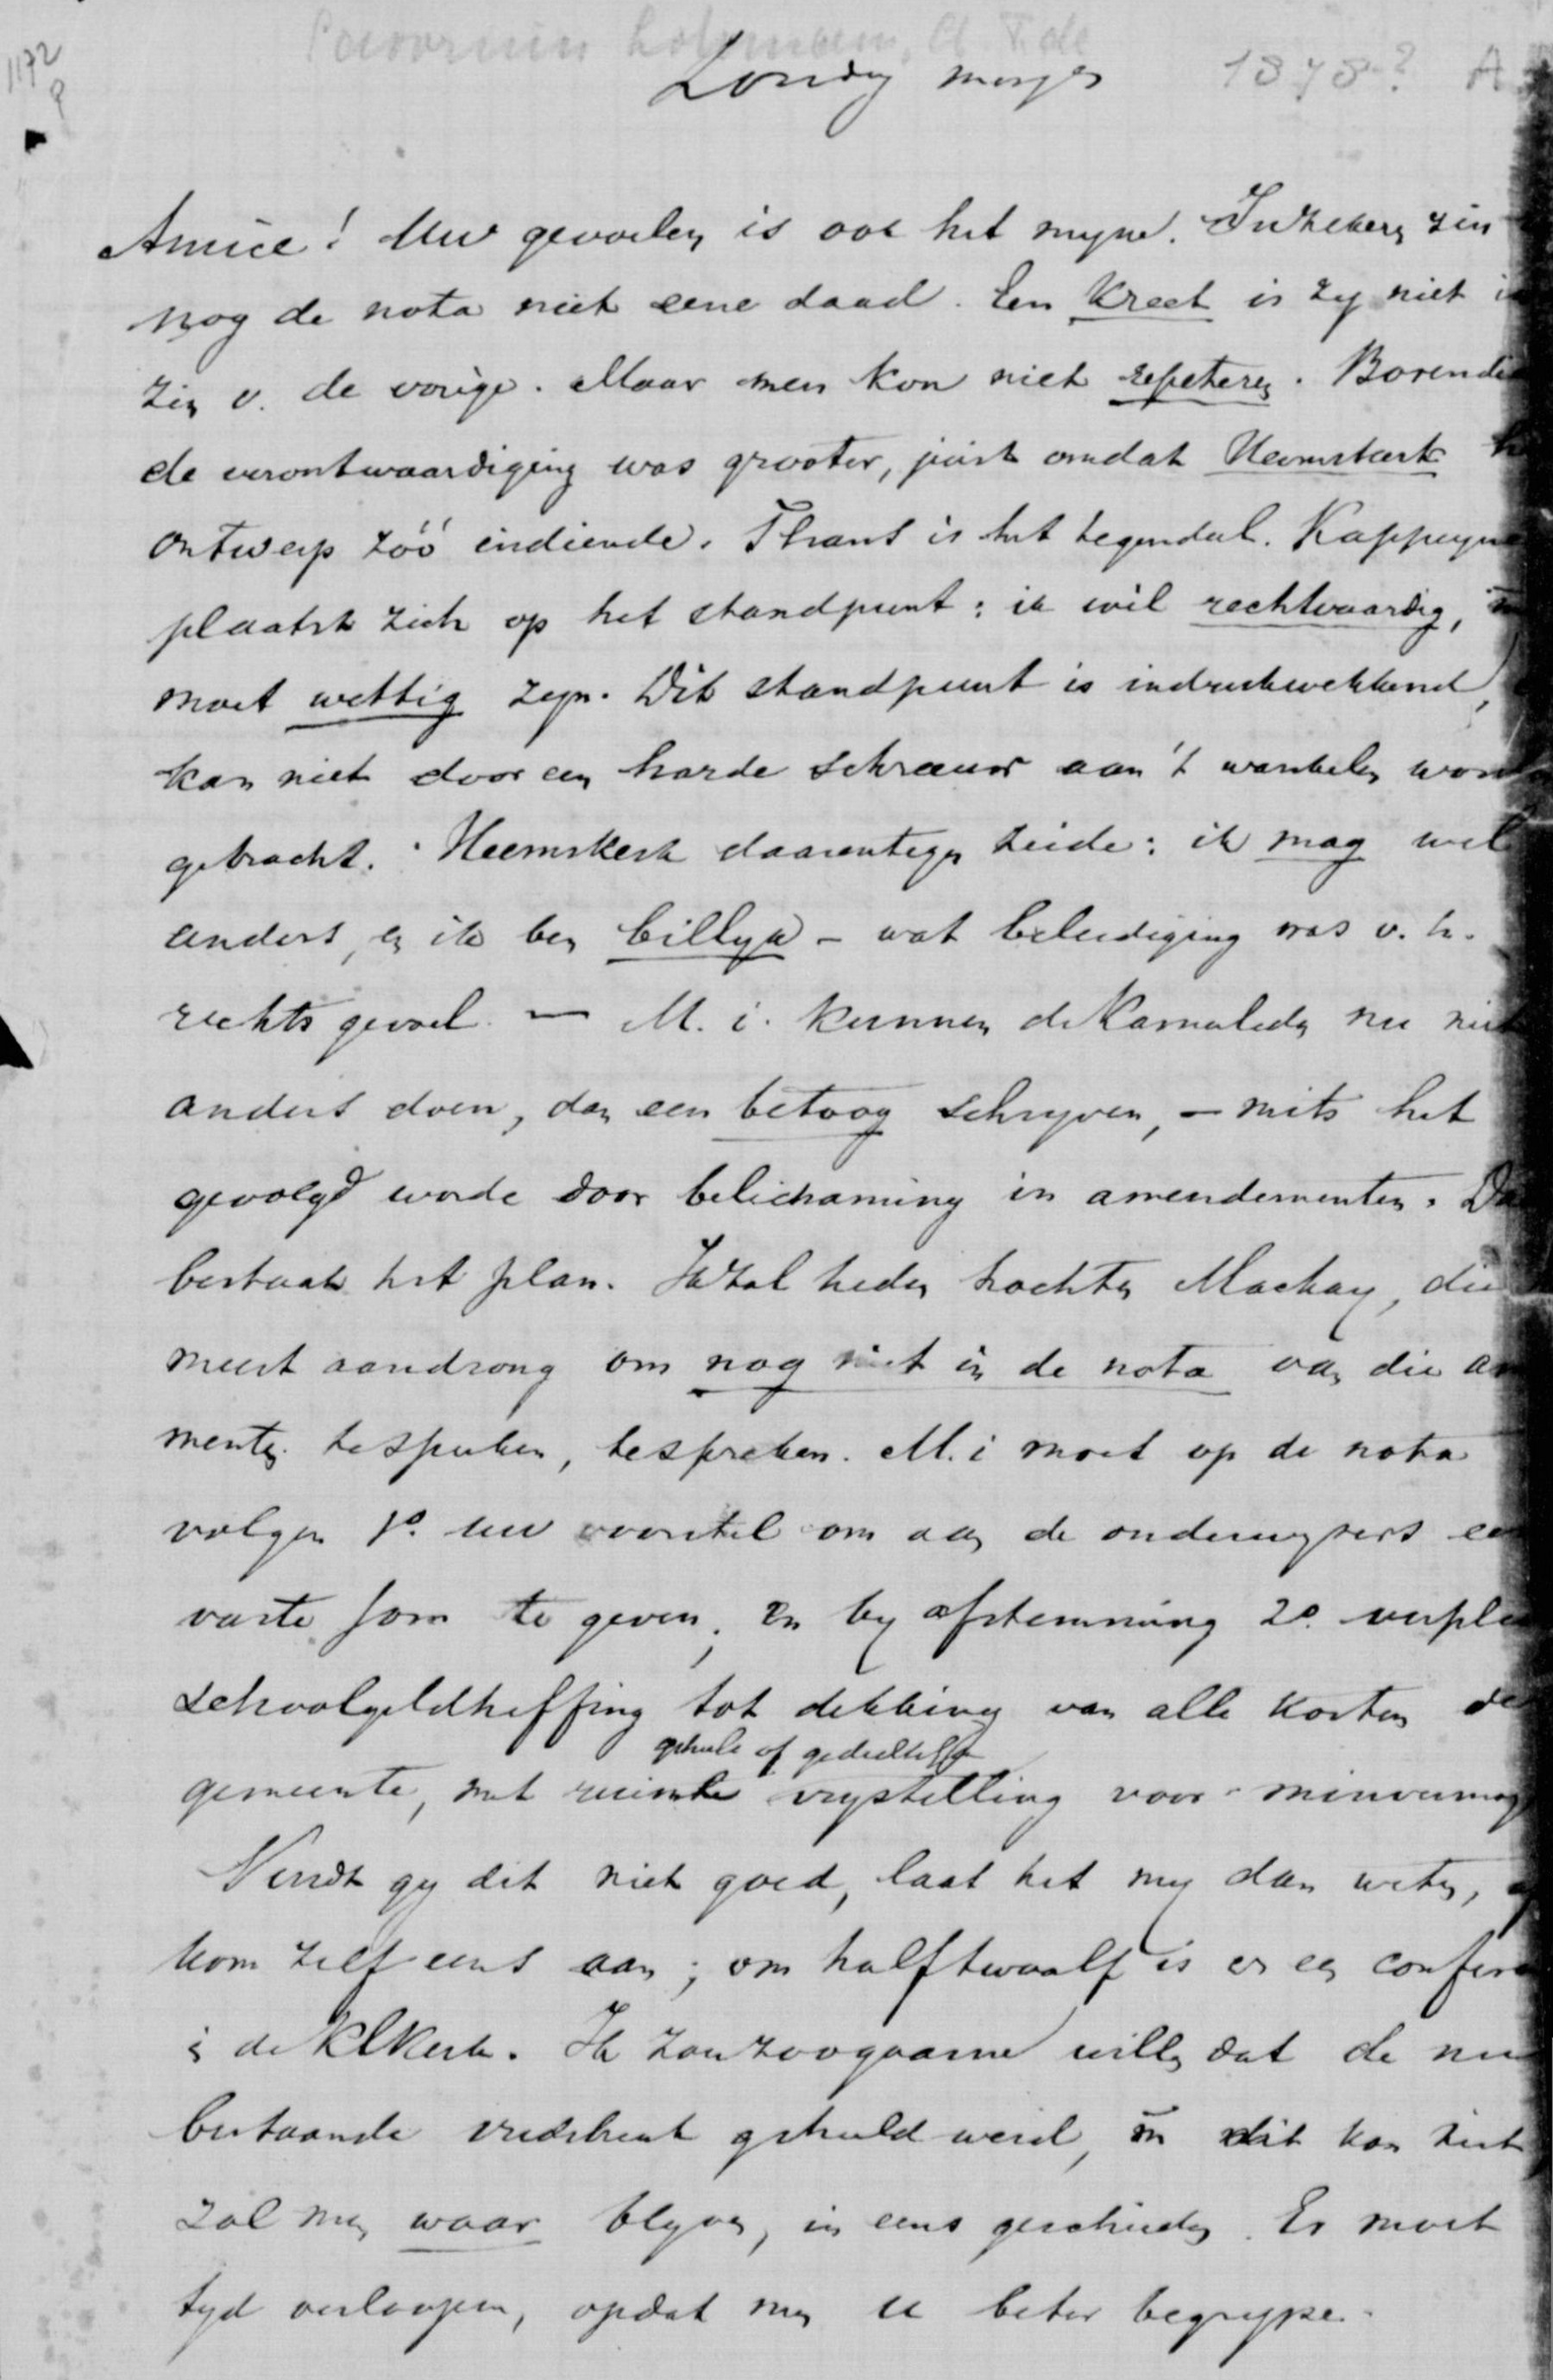 1172
Savornin Lohman, A. F. de
Zondag morgen 1878? A
Amice! Uw gevoelen is ook het myne. In zekeren zin
nog de nota niet eene daad. Een kreet is zy niet
zin v. de vorige. Maar men kon niet repeteren. Bovendie
de verontwaardiging was grooter, juist omdat Heemskerk
ontwerp zóó indiende. Thans is het tegendeel. Kappeyne
plaatst zich op het standpunt: ik wil rechtvaardig,
moet wettig zyn. Dit standpunt is indrukwekkend,
kan niet door een harde schreeuw aan 't wankelen worden
gebracht. Heemskerk daarentegen zeide: ik mag wel
anders, en ik ben billyk - wat beleediging was v. h.
rechtsgevoel. — M. i. kunnen de Kamerleden nu niet
anders doen, dan een betoog schryven, - mits het
gevolgd worde door belichaming in amendementen. Da
bestaat het plan. Ik zal heden trachten Mackay, die
meest aandrong om nog niet in de nota van die am
menten te spreken, te spreken. M. i moet op de nota
volgen 1º. uw voorstel om aan de onderwyzers een
vaste som te geven; en by afstemming 2º. verplic
schoolgeldheffing tot dekking van alle kosten de
geheele of gedeeltelyke
gemeente, met ruimte vrystelling voor minvermog
Vindt gy dit niet goed, laat het my dan weten, of
kom zelf eens aan; om halftwaalf is er een confere
in de Kl Kerk. Ik zou zoo gaarne willen dat de nu
bestaande vredebreuk geheeld werd, en dit kan niet
zal men waar blyven, in eens geschieden. Er moet
tyd verloopen, opdat men u beter begrype.